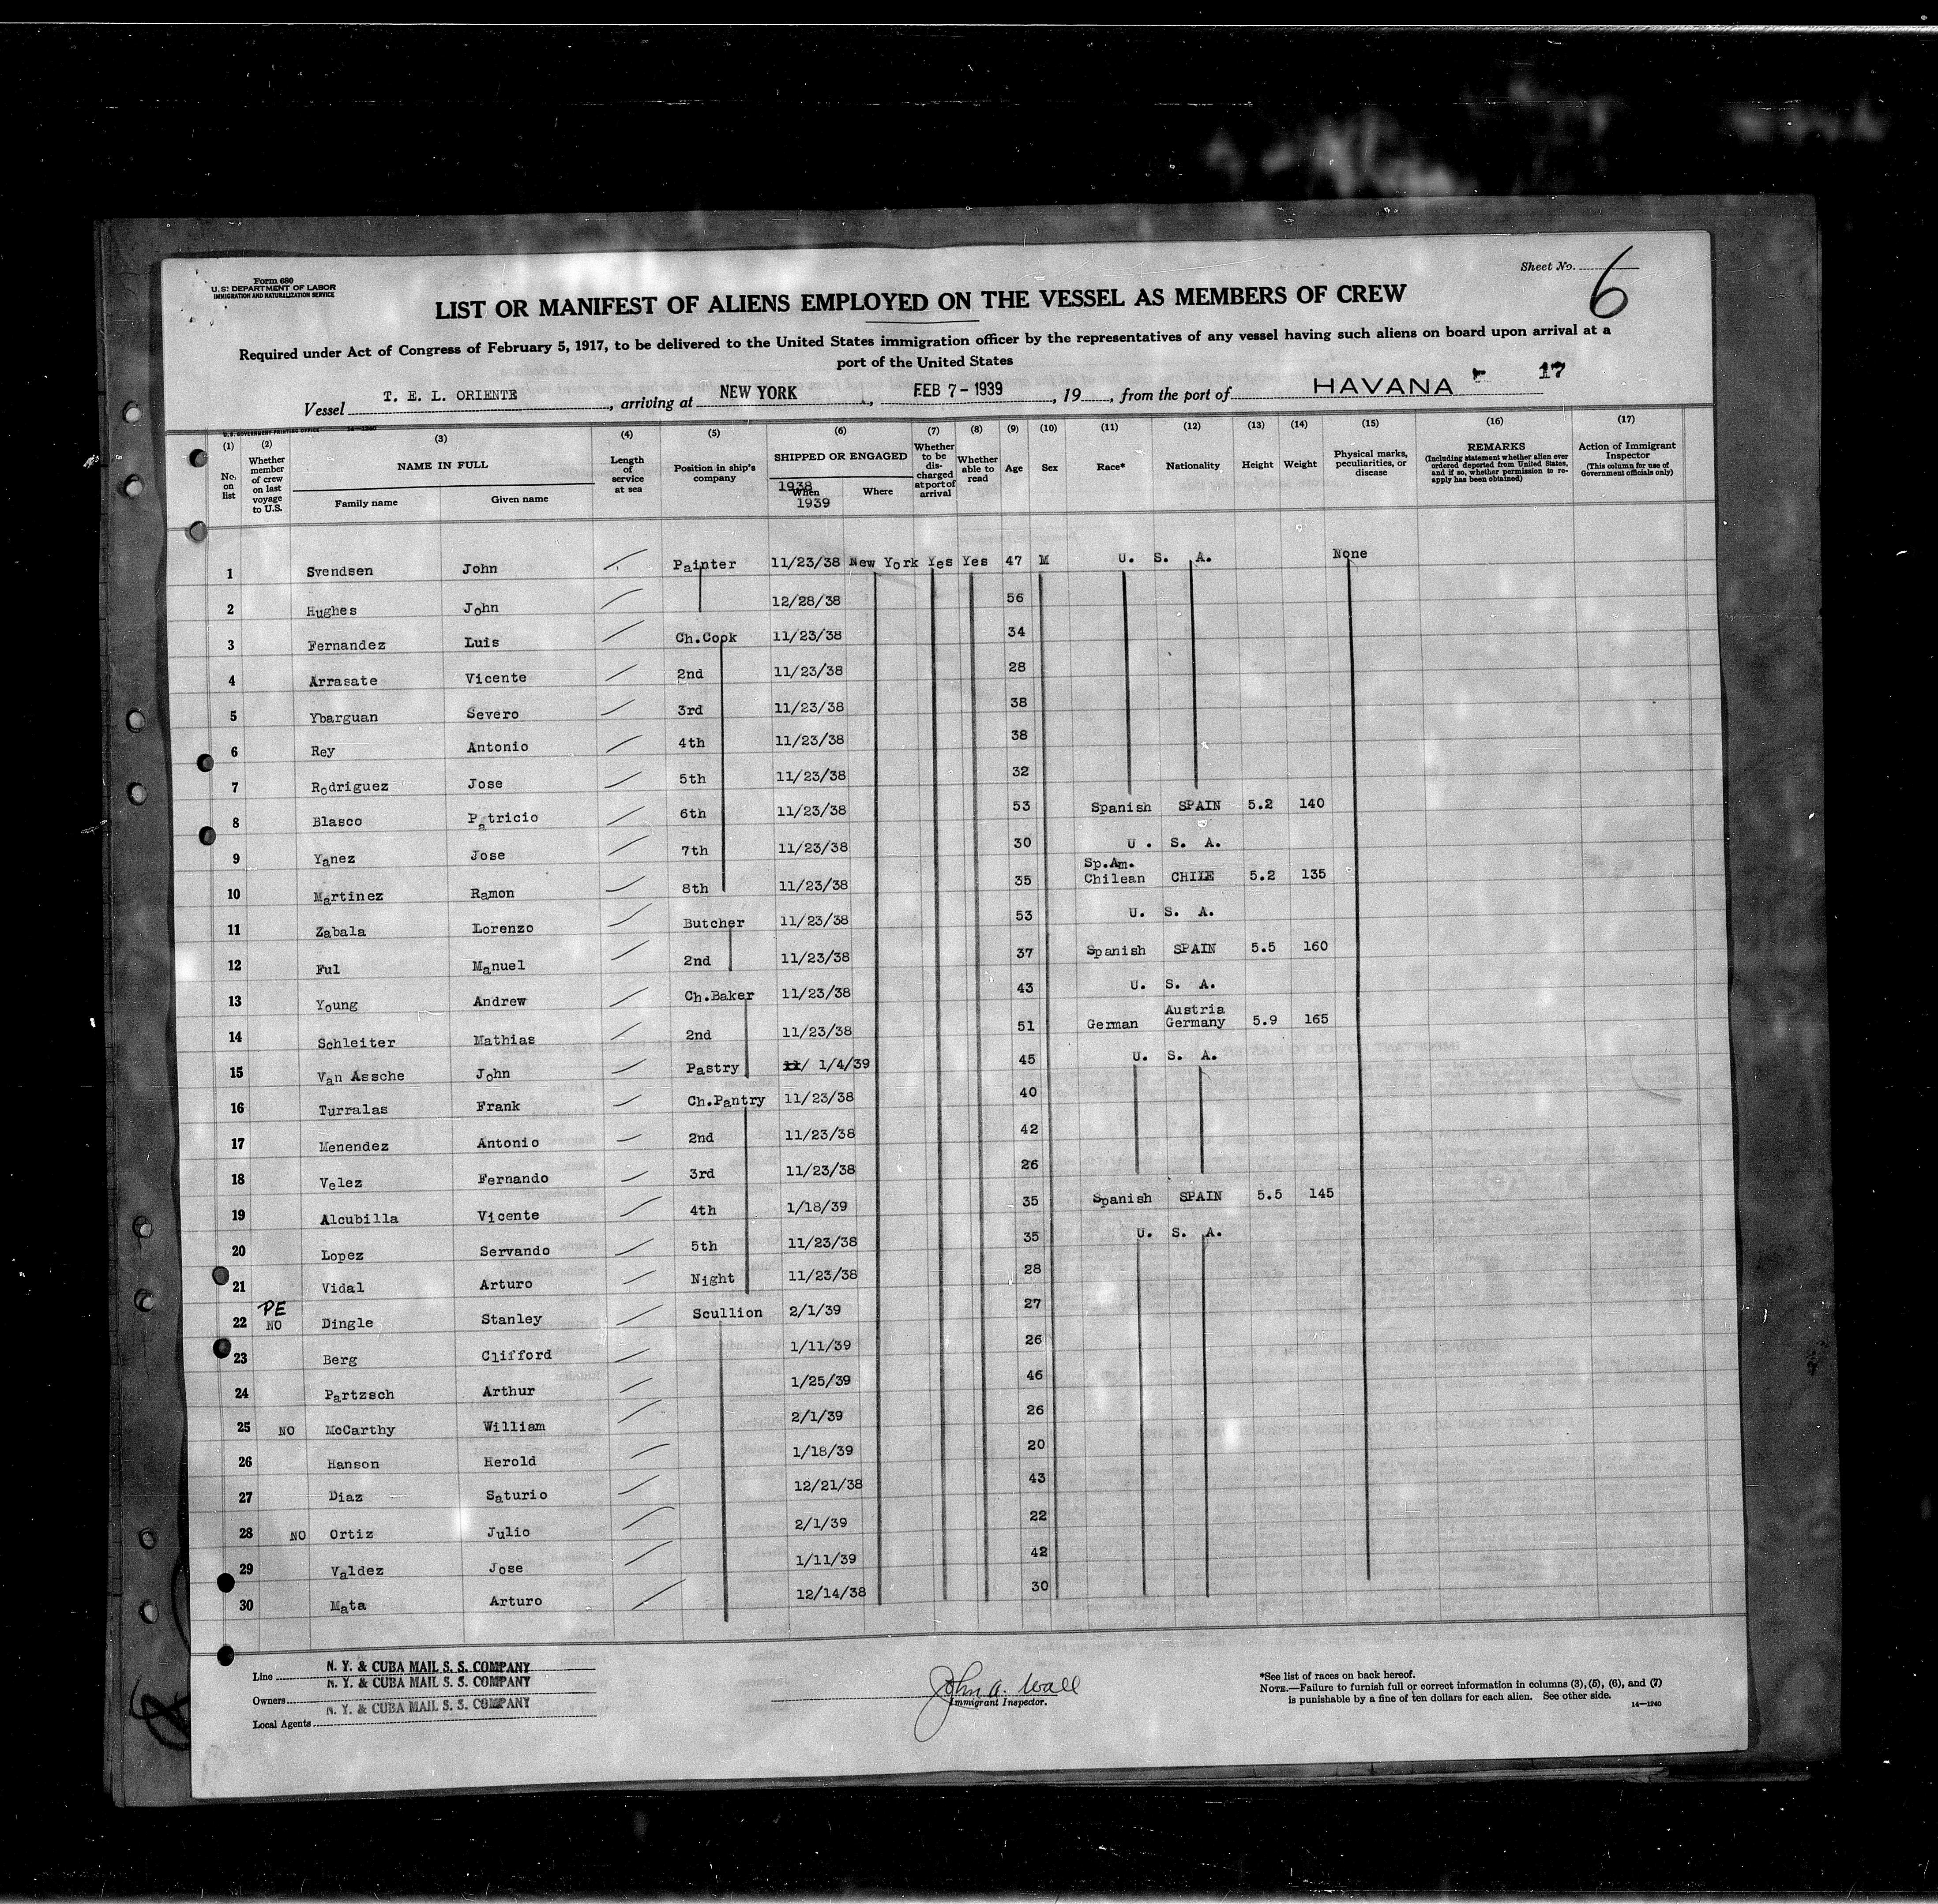 Form 680
U.S. DEPARTMENT OF LABOR
IMMIGRATION AND NATURALIZATION SERVICE
Sheet No. 6
LIST OR MANIFEST OF ALIENS EMPLOYED ON THE VESSEL AS MEMBERS OF CREW
Required under Act of Congress of February 5, 1917, to be delivered to the United States immigration officer by the representatives of any vessel having such aliens on board upon arrival at a
port of the United States
Vessel T. E. L. ORIENTE, arriving at NEW YORK, FEB 7 - 1939, 19, from the port of HAVANA 17
U.S. GOVERNMENT PRINTING OFFICE 14-1240
(1) No. on list
(2) Whether member of crew on last voyage to U.S.
(3) NAME IN FULL Family name Given name
(4) Length of service at sea
(5) Position in ship's company
(6) SHIPPED OR ENGAGED 1938 When 1939 Where
(7) Whether to be discharged at port of arrival
(8) Whether able to read
(9) Age
(10) Sex
(11) Race*
(12) Nationality
(13) Height
(14) Weight
(15) Physical marks, peculiarities, or disease
(16) REMARKS (Including statement whether alien ever ordered deported from United States, and if so, whether permission to reapply has been obtained)
(17) Action of Immigrant Inspector (This column for use of Government officials only)
1 Svendsen John Painter 11/23/38 New York Yes Yes 47 M U. S. A. None
2 Hughes John 12/28/38 56
3 Fernandez Luis Ch.Cook 11/23/38 34
4 Arrasate Vicente 2nd 11/23/38 28
5 Ybarguan Severo 3rd 11/23/38 38
6 Rey Antonio 4th 11/23/38 38
7 Rodriguez Jose 5th 11/23/38 32
8 Blasco Patricio 6th 11/23/38 53 Spanish SPAIN 5.2 140
9 Yanez Jose 7th 11/23/38 30 U. S. A.
10 Martinez Ramon 8th 11/23/38 35 Sp.Am. Chilean CHILE 5.2 135
11 Zabala Lorenzo Butcher 11/23/38 53 U. S. A.
12 Ful Manuel 2nd 11/23/38 37 Spanish SPAIN 5.5 160
13 Young Andrew Ch.Baker 11/23/38 43 U. S. A.
14 Schleiter Mathias 2nd 11/23/38 51 German Austria Germany 5.9 165
15 Van Assche John Pastry 11/ 1/4/39 45 U. S. A.
16 Turralas Frank Ch.Pantry 11/23/38 40
17 Menendez Antonio 2nd 11/23/38 42
18 Velez Fernando 3rd 11/23/38 26
19 Alcubilla Vicente 4th 1/18/39 35 Spanish SPAIN 5.5 145
20 Lopez Servando 5th 11/23/38 35 U. S. A.
21 Vidal Arturo Night 11/23/38 28
22 PE NO Dingle Stanley Scullion 2/1/39 27
23 Berg Clifford 1/11/39 26
24 Partzsch Arthur 1/25/39 46
25 NO McCarthy William 2/1/39 26
26 Hanson Herold 1/18/39 20
27 Diaz Saturio 12/21/38 43
28 NO Ortiz Julio 2/1/39 22
29 Valdez Jose 1/11/39 42
30 Mata Arturo 12/14/38 30
Line N. Y. & CUBA MAIL S. S. COMPANY
Owners N. Y. & CUBA MAIL S. S. COMPANY
Local Agents N. Y. & CUBA MAIL S. S. COMPANY
John A. Wall
Immigrant Inspector.
*See list of races on back hereof.
NOTE.—Failure to furnish full or correct information in columns (3), (5), (6), and (7)
is punishable by a fine of ten dollars for each alien. See other side.
14-1240